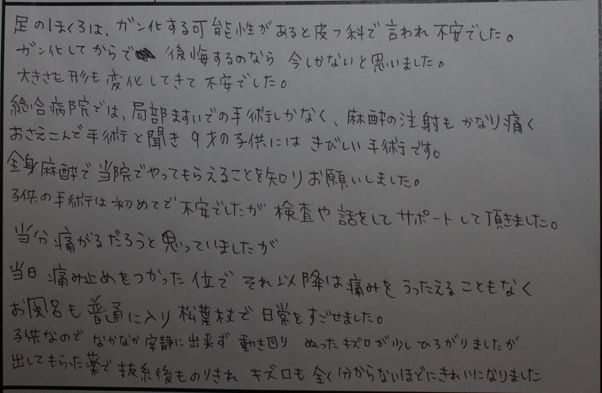 足のほくろは、ガン化する可能性があると皮フ科で言われ不安でした。
ガン化してからで 後悔するのなら 今しかないと思いました。
大きさも形も変化してきて不安でした。
総合病院では、局部ますいでの手術しかなく、麻酔の注射もかなり痛く
おさえこんで手術と聞き 9才の子供には きびしい手術です。
全身麻酔で当院でやってもらえることを知りお願いしました。
子供の手術は初めてで不安でしたが 検査や話をしてサポートして頂きました。
当分痛がるだろうと思っていましたが
当日 痛み止めをつかった位で それ以降は痛みをうったえることもなく
お風呂も普通に入り 松葉杖で日常をすごせました。
子供なので なかなか安静に出来ず 動き回り ぬったキズ口が少しひろがりましたが
出してもらった薬で 抜糸後ものりきれ キズ口も全く分からないほどにきれいになりました